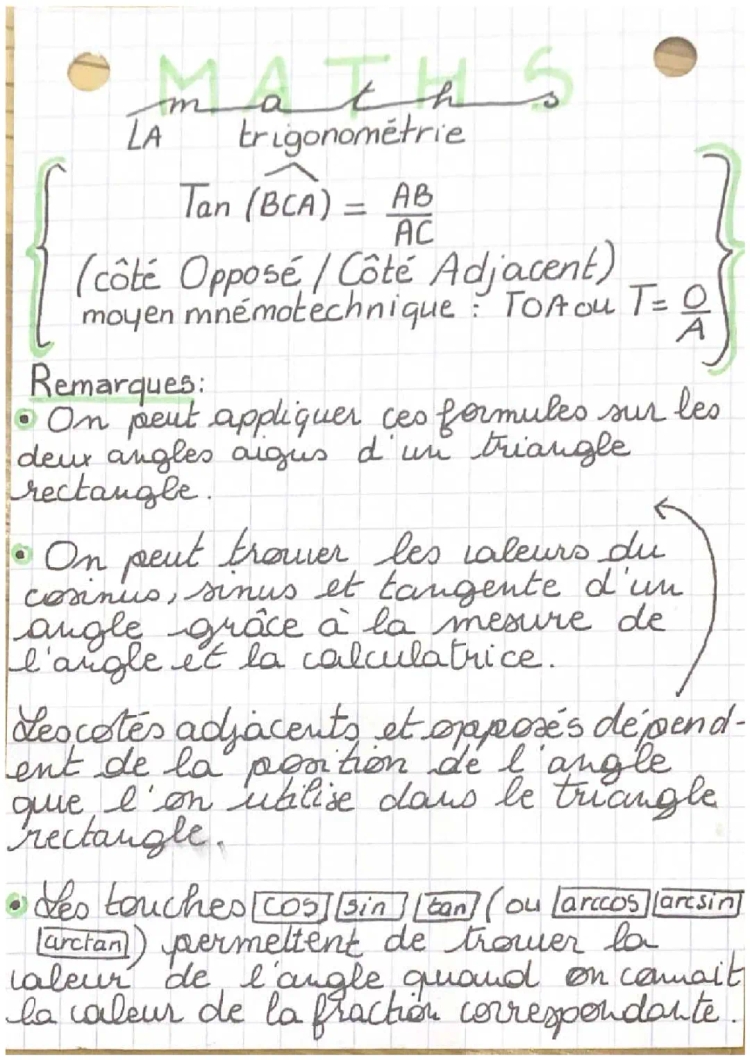 MATHS
maths
LA trigonométrie
Tan (BCA) = AB/AC
(côté Opposé / Côté Adjacent)
moyen mnémotechnique : TOA ou T= O/A
Remarques:
• On peut appliquer ces formules sur les
deux angles aigus d'un triangle
rectangle.
• On peut trouver les valeurs du
cosinus, sinus et tangente d'un
angle grâce à la mesure de
l'angle et la calculatrice.
Les cotés adjacents et opposés dépend-
ent de la position de l'angle
que l'on utilise dans le triangle
rectangle.
• Les touches cos sin tan (ou arccos arcsin
arctan) permettent de trouver la
valeur de l'angle quand on connait
la valeur de la fraction correspondante.